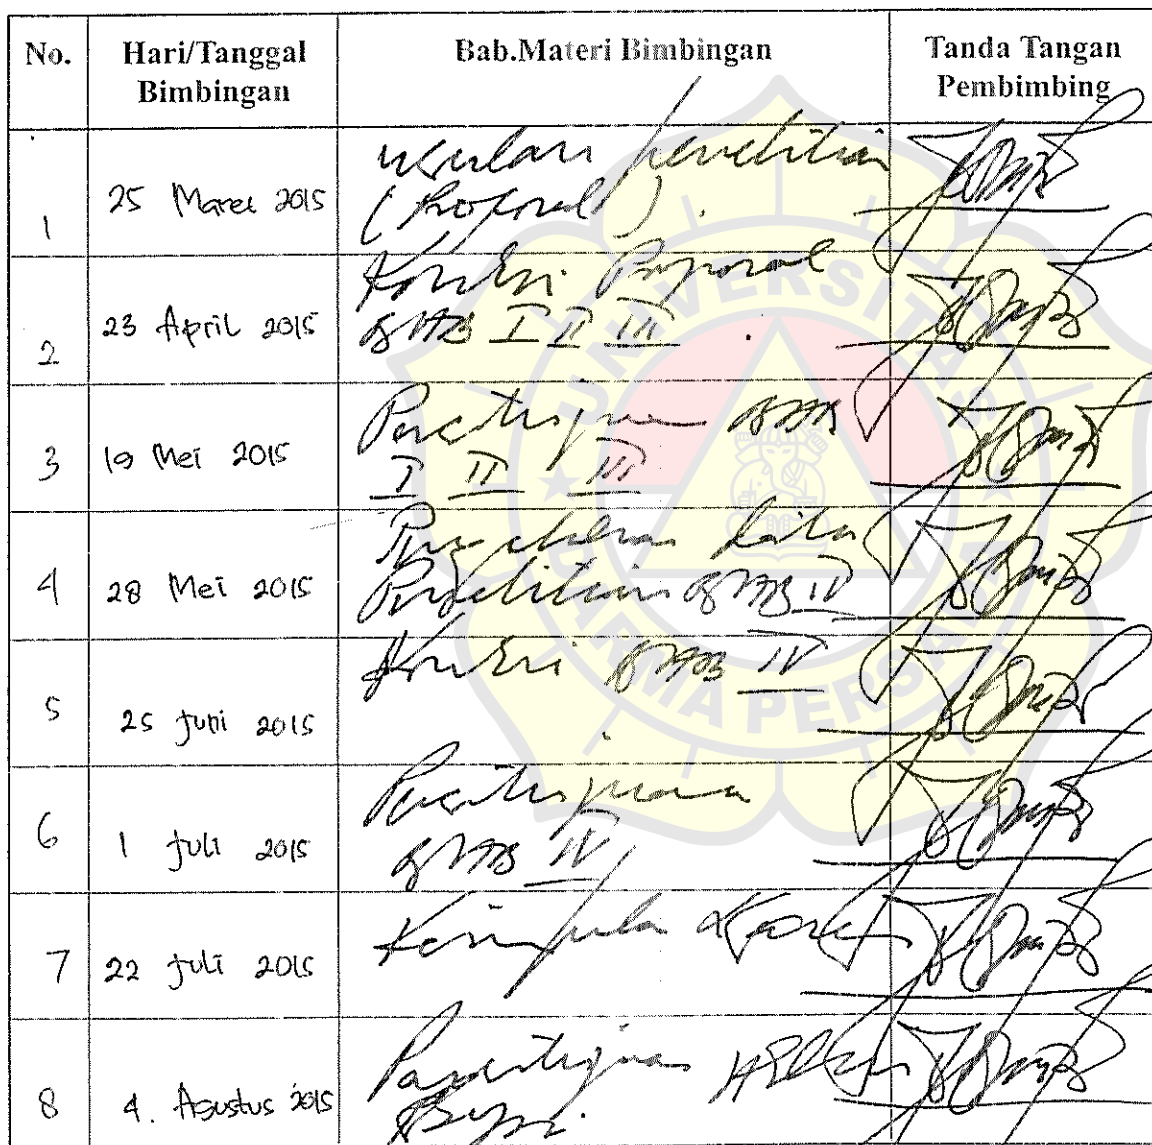 No.
Hari/Tanggal
Bimbingan
Bab.Materi Bimbingan
Tanda Tangan
Pembimbing
1
25 Maret 2015
usulan penelitian
(Proposal)
2
23 April 2015
Koreksi Proposal
BAB I II III
3
19 Mei 2015
BAB
I II III
4
28 Mei 2015
data
Penelitian BAB IV
5
25 Juni 2015
Koreksi BAB IV
6
1 Juli 2015
BAB IV
7
22 Juli 2015
8
4. Agustus 2015
UNIVERSITAS
DARMA PERSADA